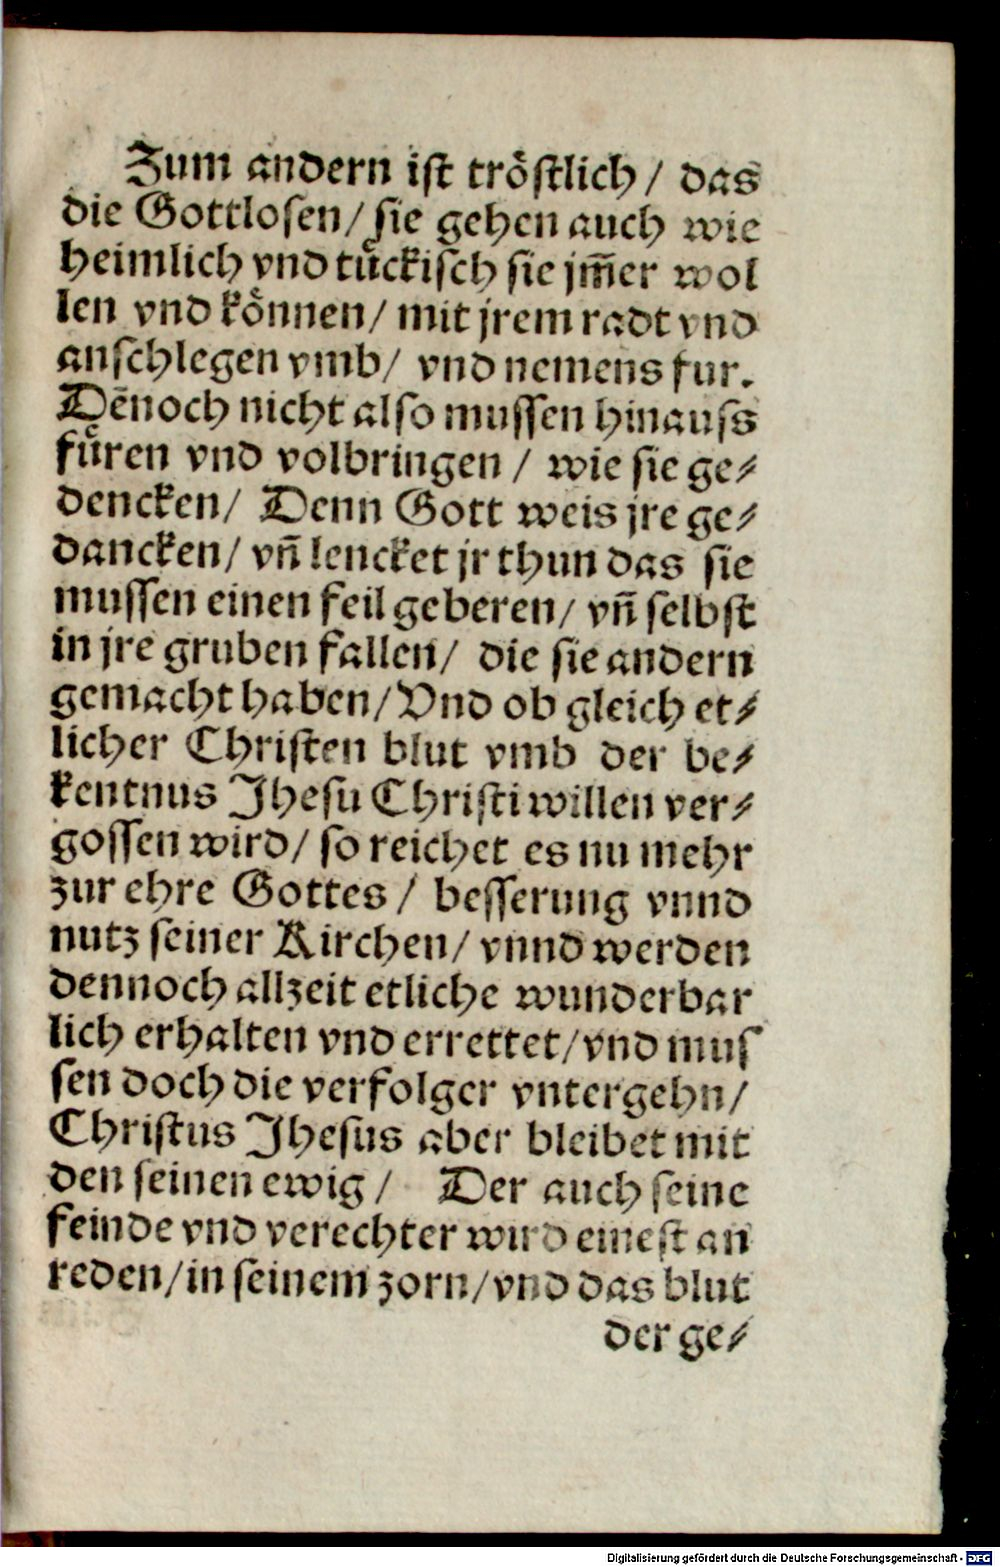 Zum andern ist tröstlich / das
die Gottlosen / sie gehen auch wie
heimlich vnd tuͤckisch sie jm̃er wol
len vnd koͤnnen / mit jrem radt vnd
anschlegen vmb / vnd nemens fur.
Dēnoch nicht also mussen hinauss
fuͤren vnd volbringen / wie sie ge⸗
dencken / Denn Gott weis jre ge⸗
dancken / vñ lencket jr thun das sie
mussen einen feil geberen / vñ selbst
in jre gruben fallen / die sie andern
gemacht haben / Vnd ob gleich et⸗
licher Christen blut vmb der be⸗
kentnus Jhesu Christi willen ver⸗
gossen wird / so reichet es nu mehr
zur ehre Gottes / besserung vnnd
nutz seiner Kirchen / vnnd werden
dennoch allzeit etliche wunderbar
lich erhalten vnd errettet / vnd mus
sen doch die verfolger vntergehn /
Christus Jhesus aber bleibet mit
den seinen ewig / Der auch seine
feinde vnd verechter wird einest an
reden / in seinem zorn / vnd das blut
der ge⸗
Digitalisierung gefördert durch die Deutsche Forschungsgemeinschaft - DFG